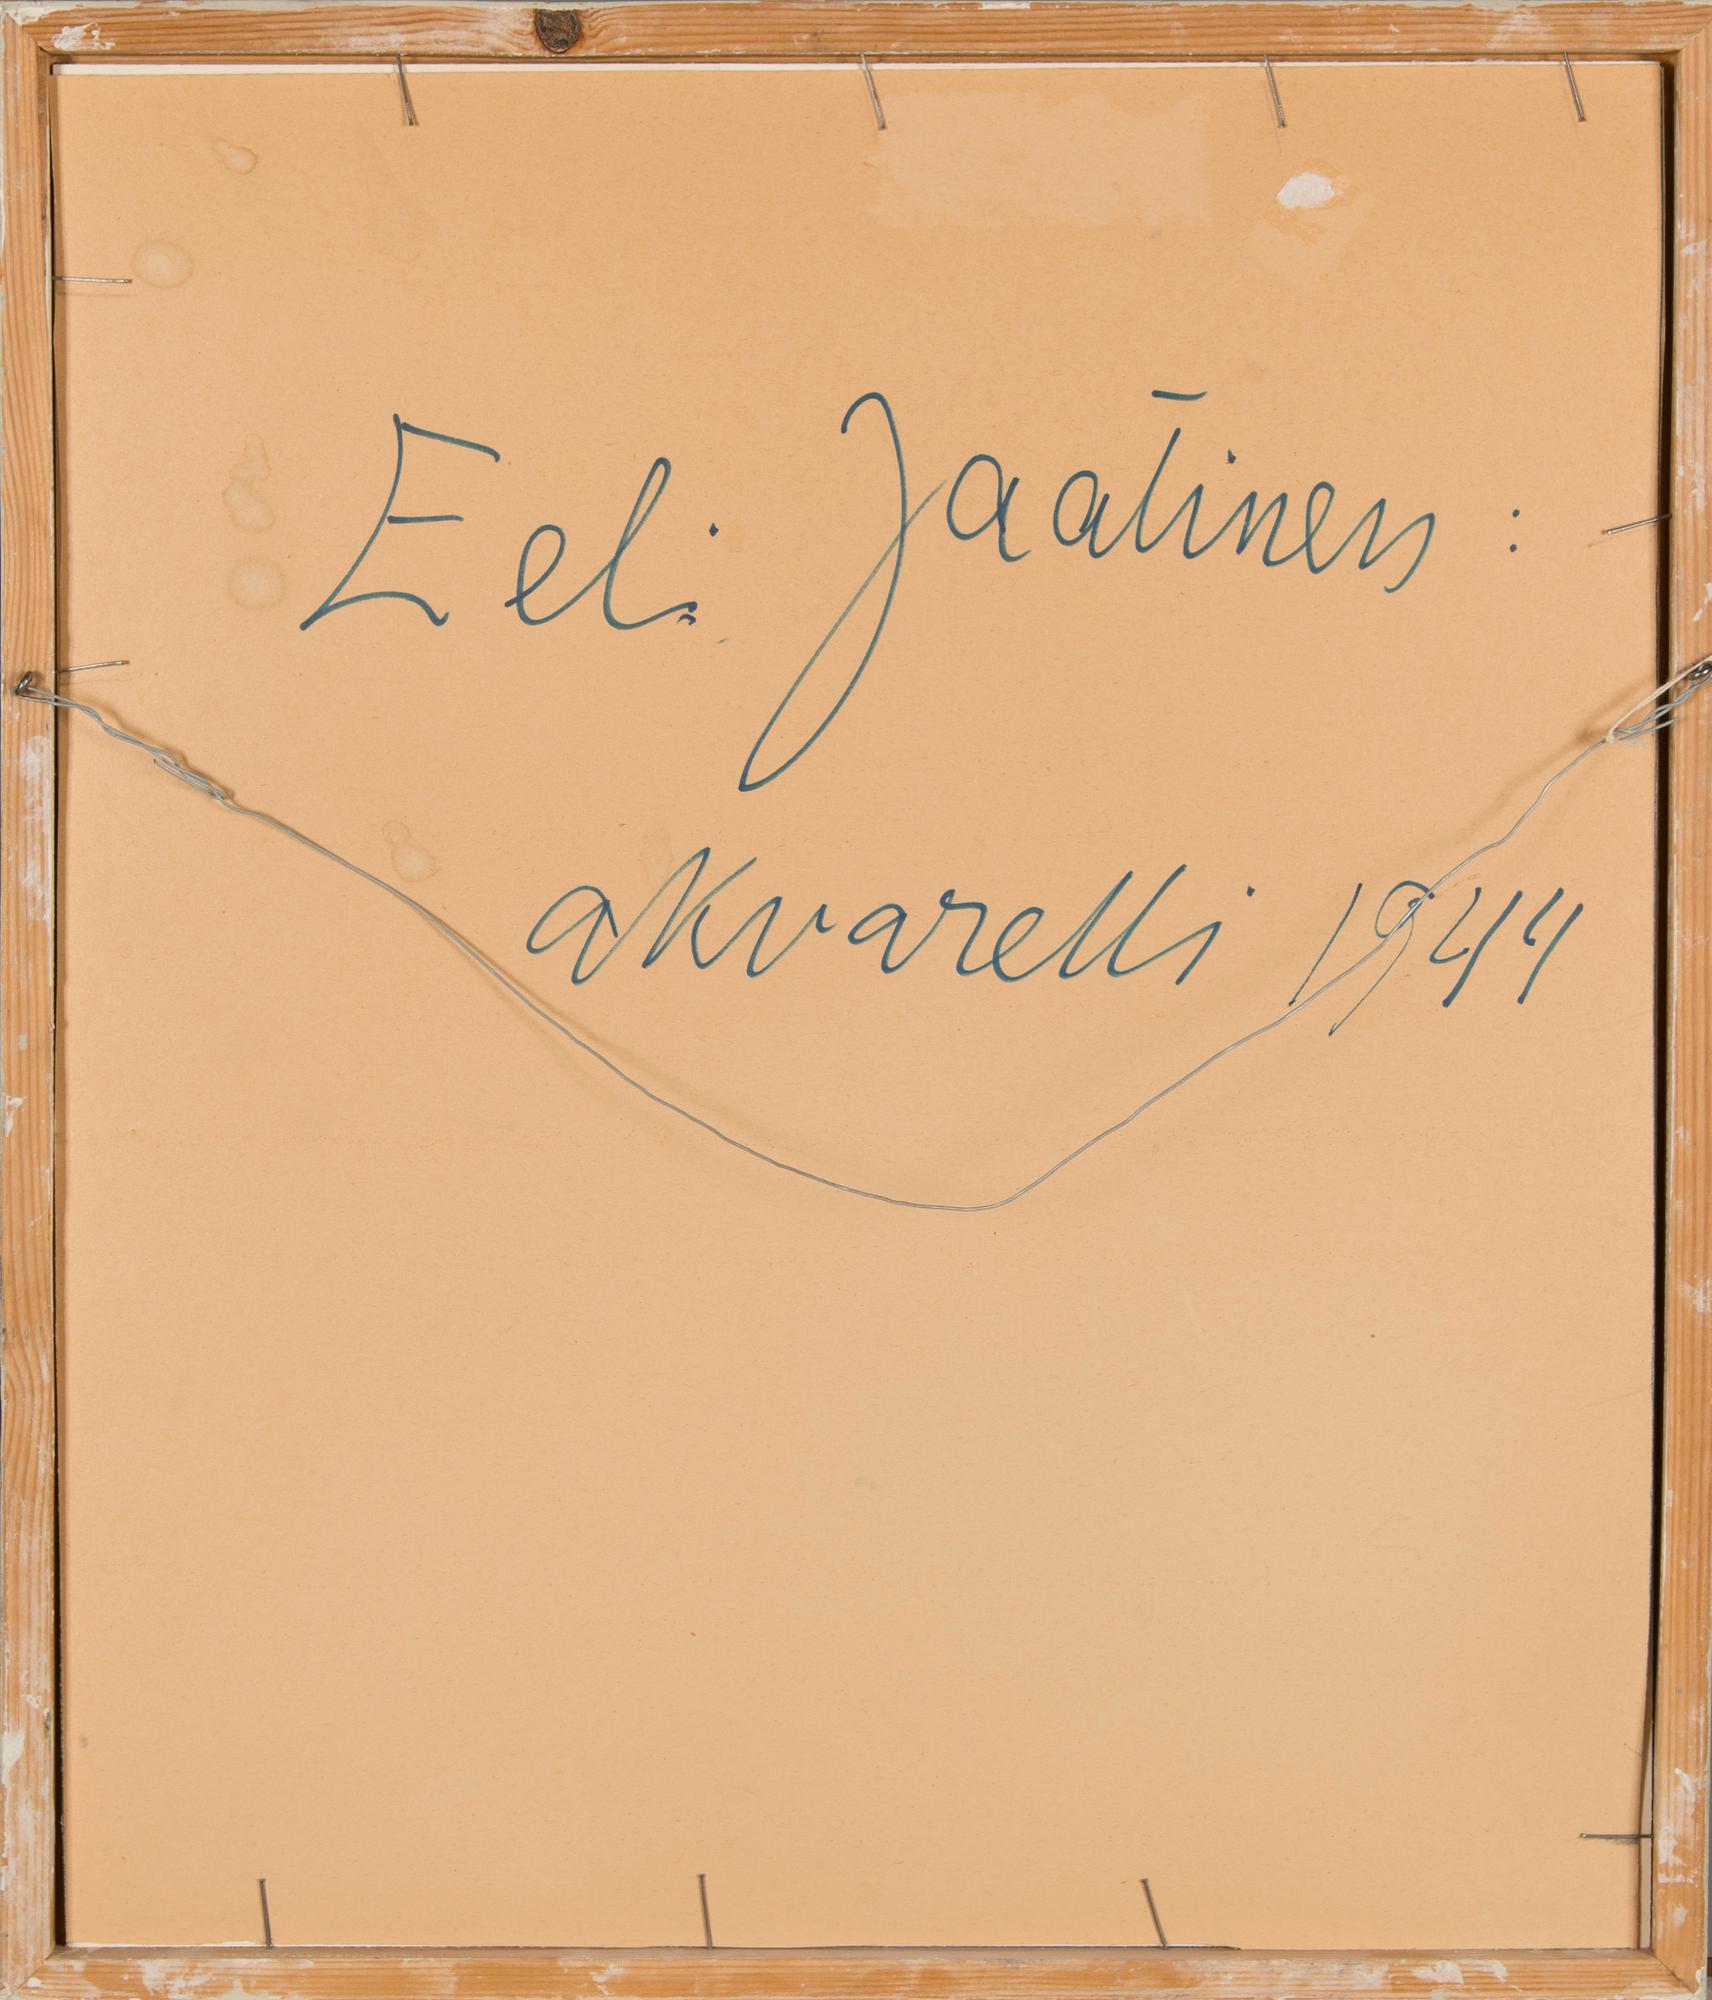 Eeli Jaatinen :
akvarelli 1944